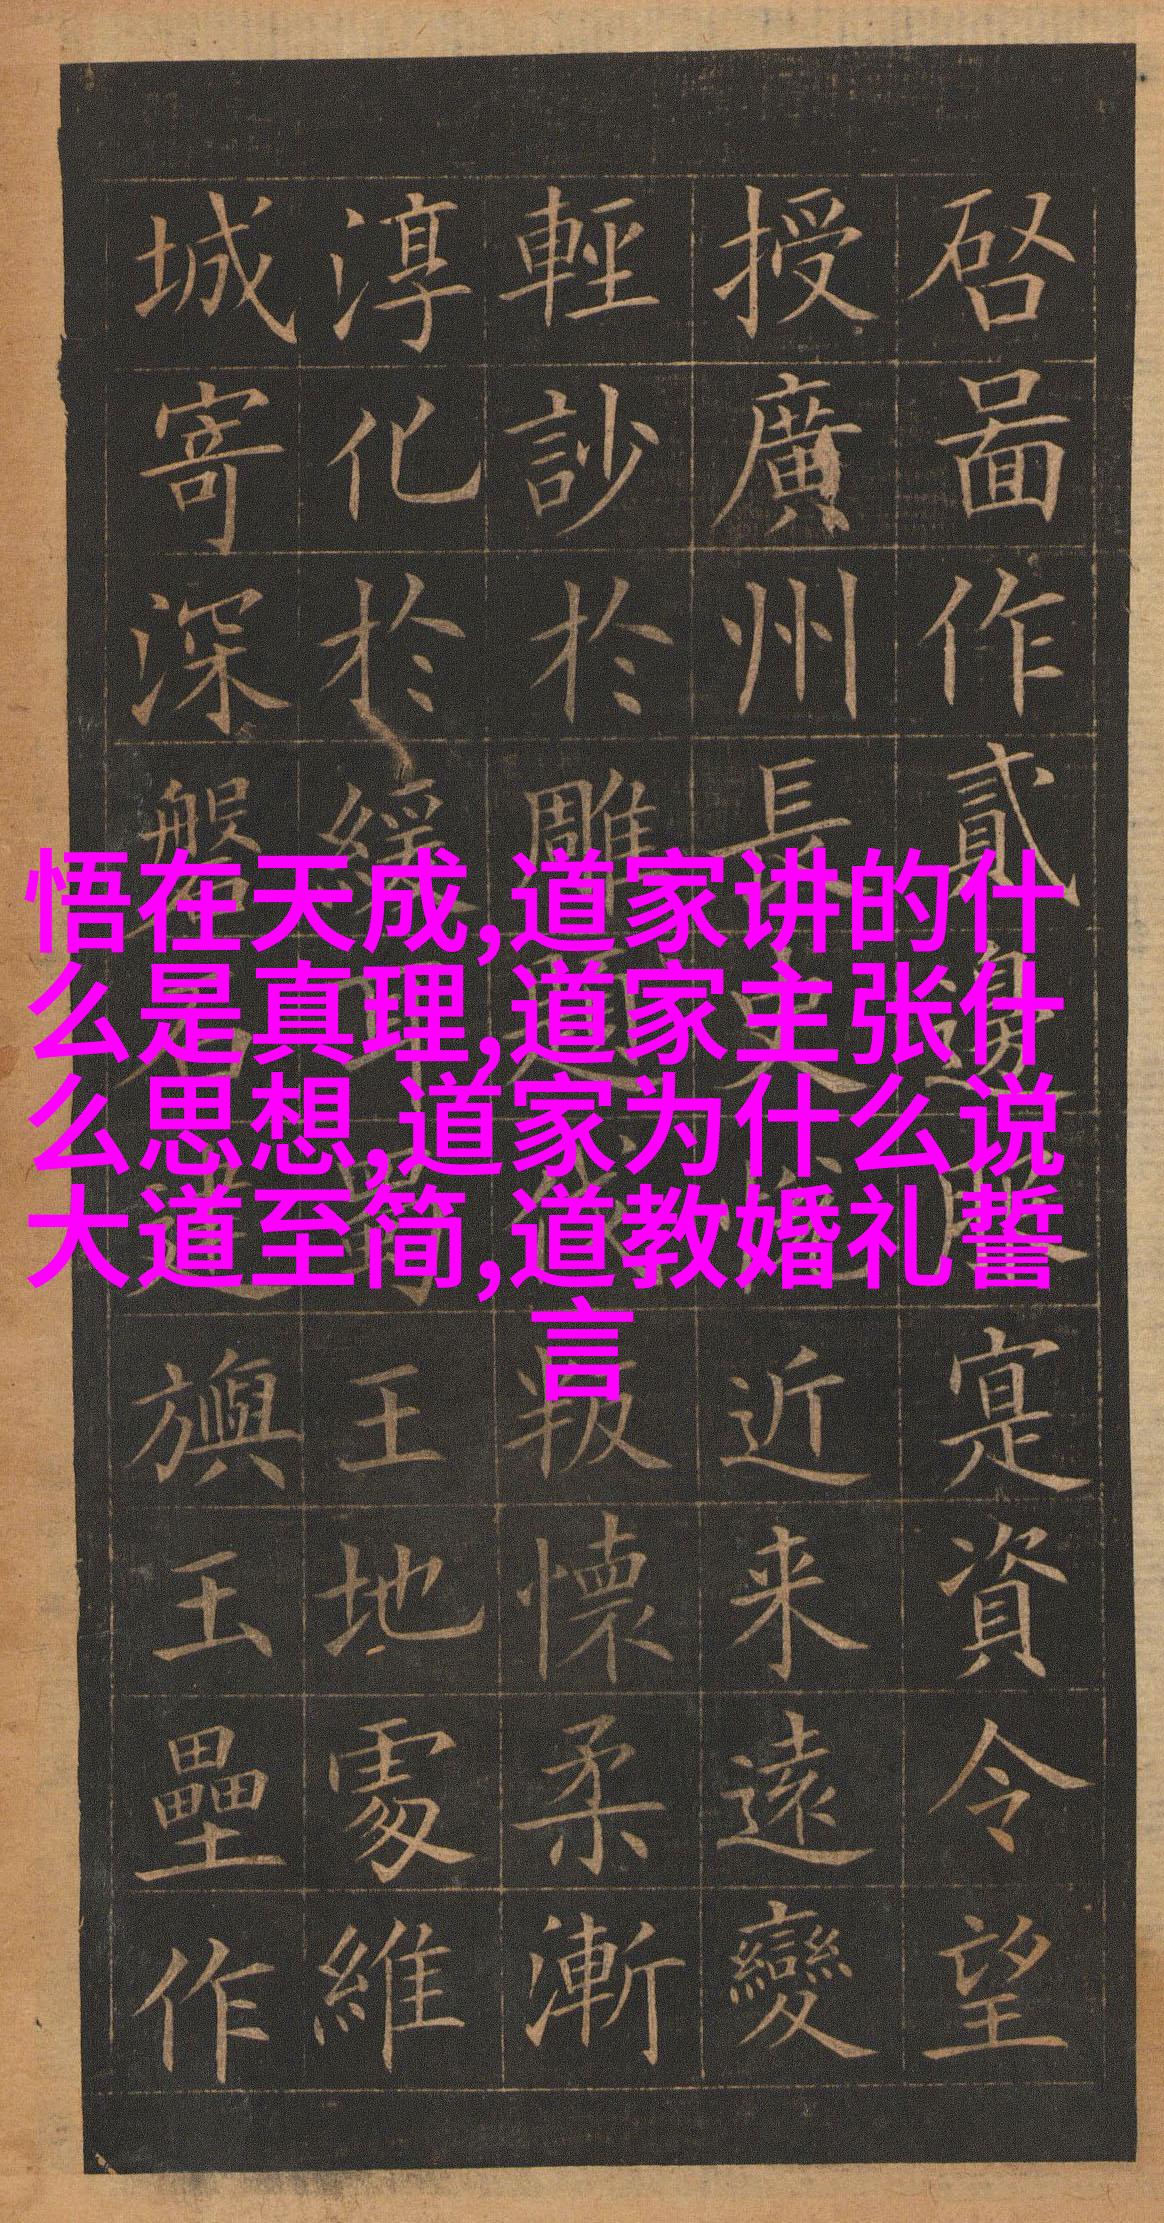 啓啚作貳邊陲寔資令望
授廣州長史近来遠變
輕訬於雕題叛懷柔漸
淳化於緩耳王地處維
城寄深磐石建旟玉壘作
悟在天成,道家讲的什
么是真理,道家主张什
么思想,道家为什么说
大道至简,道教婚礼誓
言